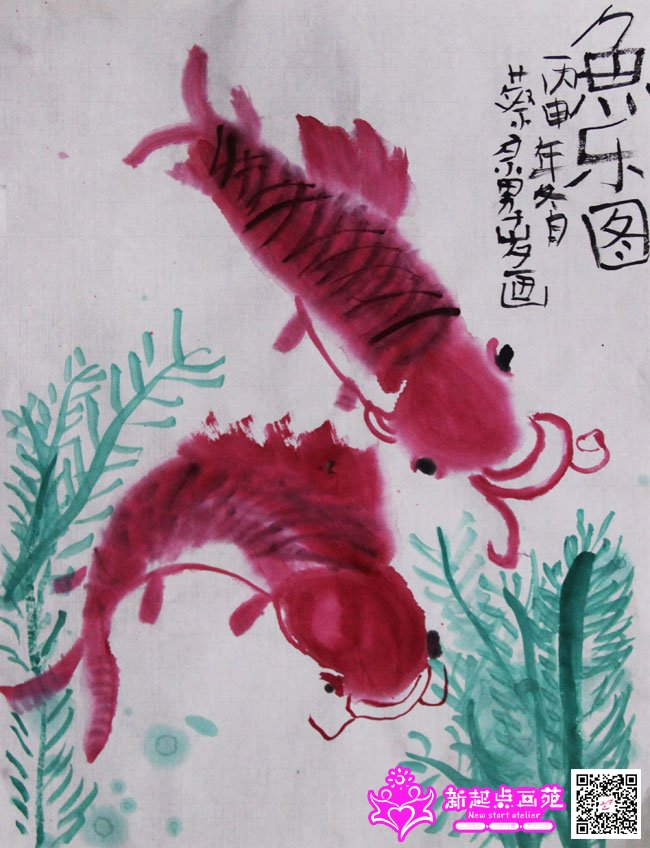 魚乐图
丙申年冬月
蔡奈男十岁画
新起点画苑
New start atelier